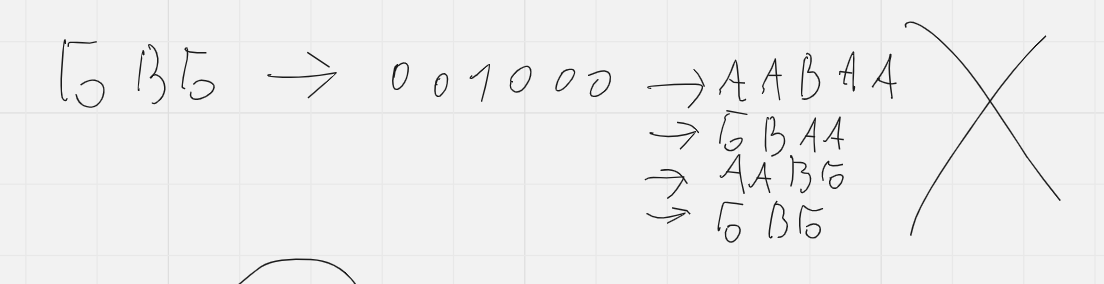 БВБ → 001000 → ААВАА
→ БВАА
→ ААВБ
→ БВБ